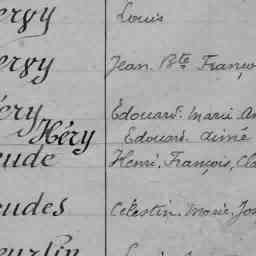 ergy Louis
ergy Jean. Bte Franço
éry Edouard. Marie An
Héry Edouard. aimé
eude Henri, François, Cla
eudes Célestin. Marie, Jos
eurlin